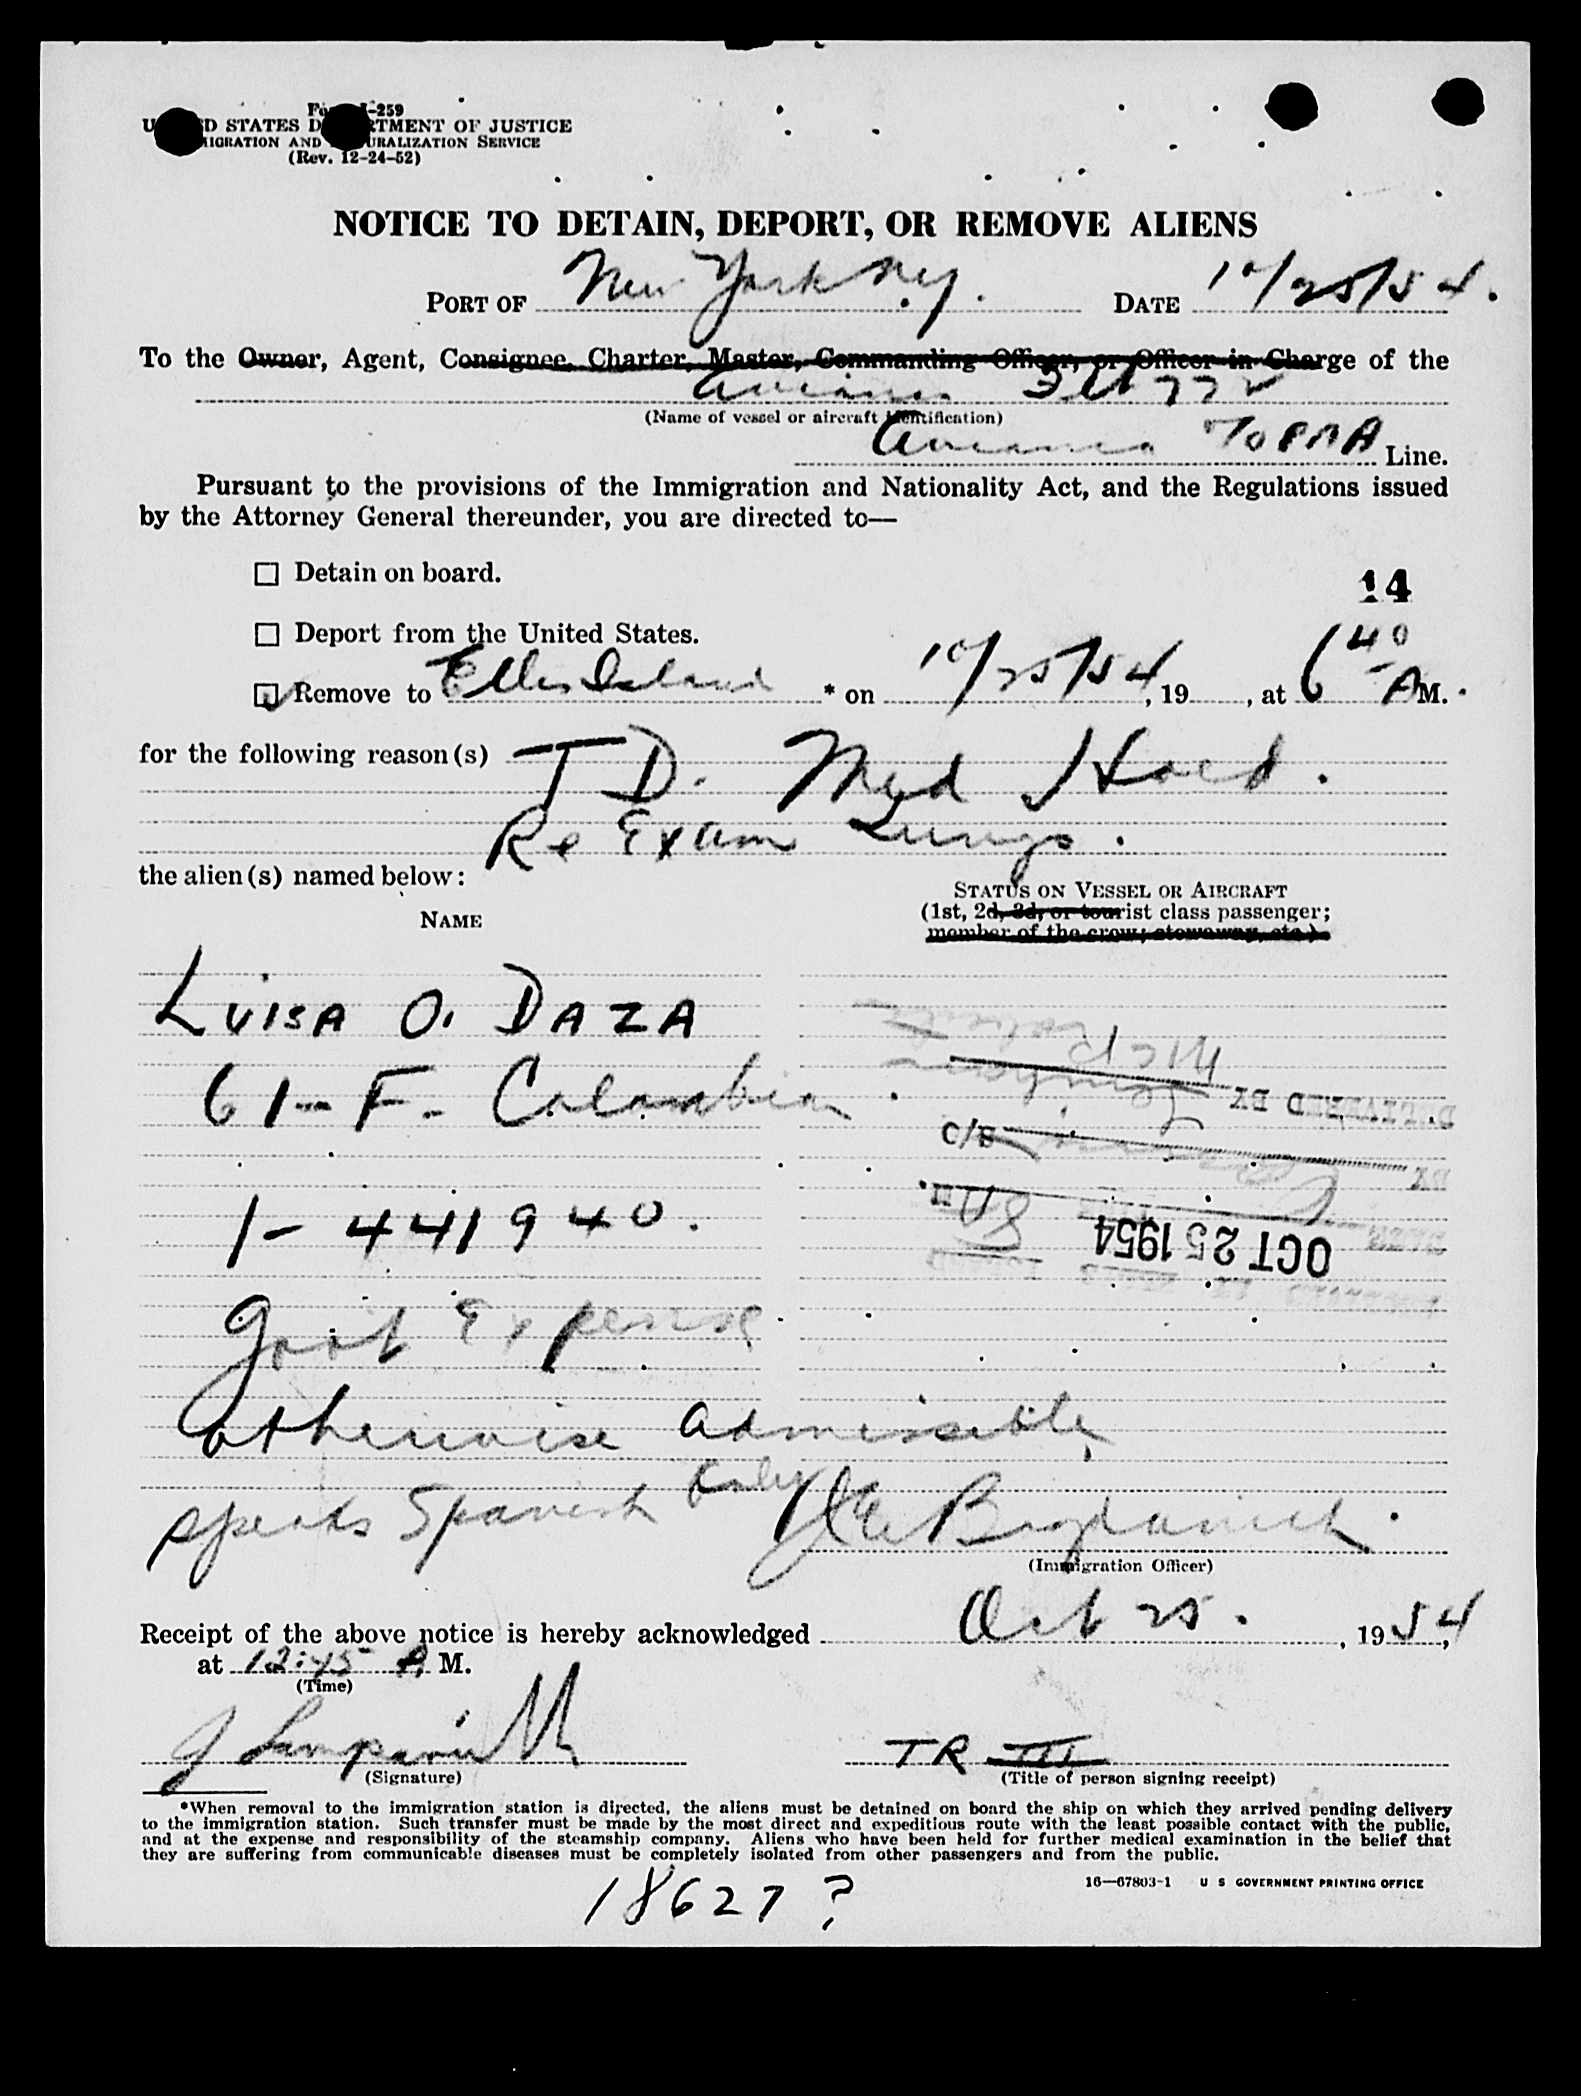 Form I-259
UNITED STATES DEPARTMENT OF JUSTICE
IMMIGRATION AND NATURALIZATION SERVICE
(Rev. 12-24-52)
NOTICE TO DETAIN, DEPORT, OR REMOVE ALIENS
PORT OF New York N.Y. DATE 10/25/54.
To the Owner, Agent, Consignee, Charter, Master, Commanding Officer, or Officer in Charge of the
Avianca Flt 772
(Name of vessel or aircraft identification)
Avianca % PAA Line.
Pursuant to the provisions of the Immigration and Nationality Act, and the Regulations issued
by the Attorney General thereunder, you are directed to—
☐ Detain on board.
14
☐ Deport from the United States.
☑ Remove to Ellis Island * on 10/25/54, 19, at 6 40 AM.
for the following reason(s) T D. Med Hold.
Re Exam Lungs.
the alien(s) named below:
STATUS ON VESSEL OR AIRCRAFT
NAME
(1st, 2d, 3d, or tourist class passenger;
member of the crew; stowaway, etc.)
LUISA O. DAZA
61-F- Colombian
DELIVERED BY
S/O
1-441940.
OCT 25 1954
Govt Expense
otherwise admissible
speaks Spanish only
(Immigration Officer)
Receipt of the above notice is hereby acknowledged Oct 25. , 1954,
at 12:45 A M.
(Time)
TR III
(Signature) (Title of person signing receipt)
*When removal to the immigration station is directed, the aliens must be detained on board the ship on which they arrived pending delivery
to the immigration station. Such transfer must be made by the most direct and expeditious route with the least possible contact with the public,
and at the expense and responsibility of the steamship company. Aliens who have been held for further medical examination in the belief that
they are suffering from communicable diseases must be completely isolated from other passengers and from the public.
16—67803-1 U S GOVERNMENT PRINTING OFFICE
18627 ?